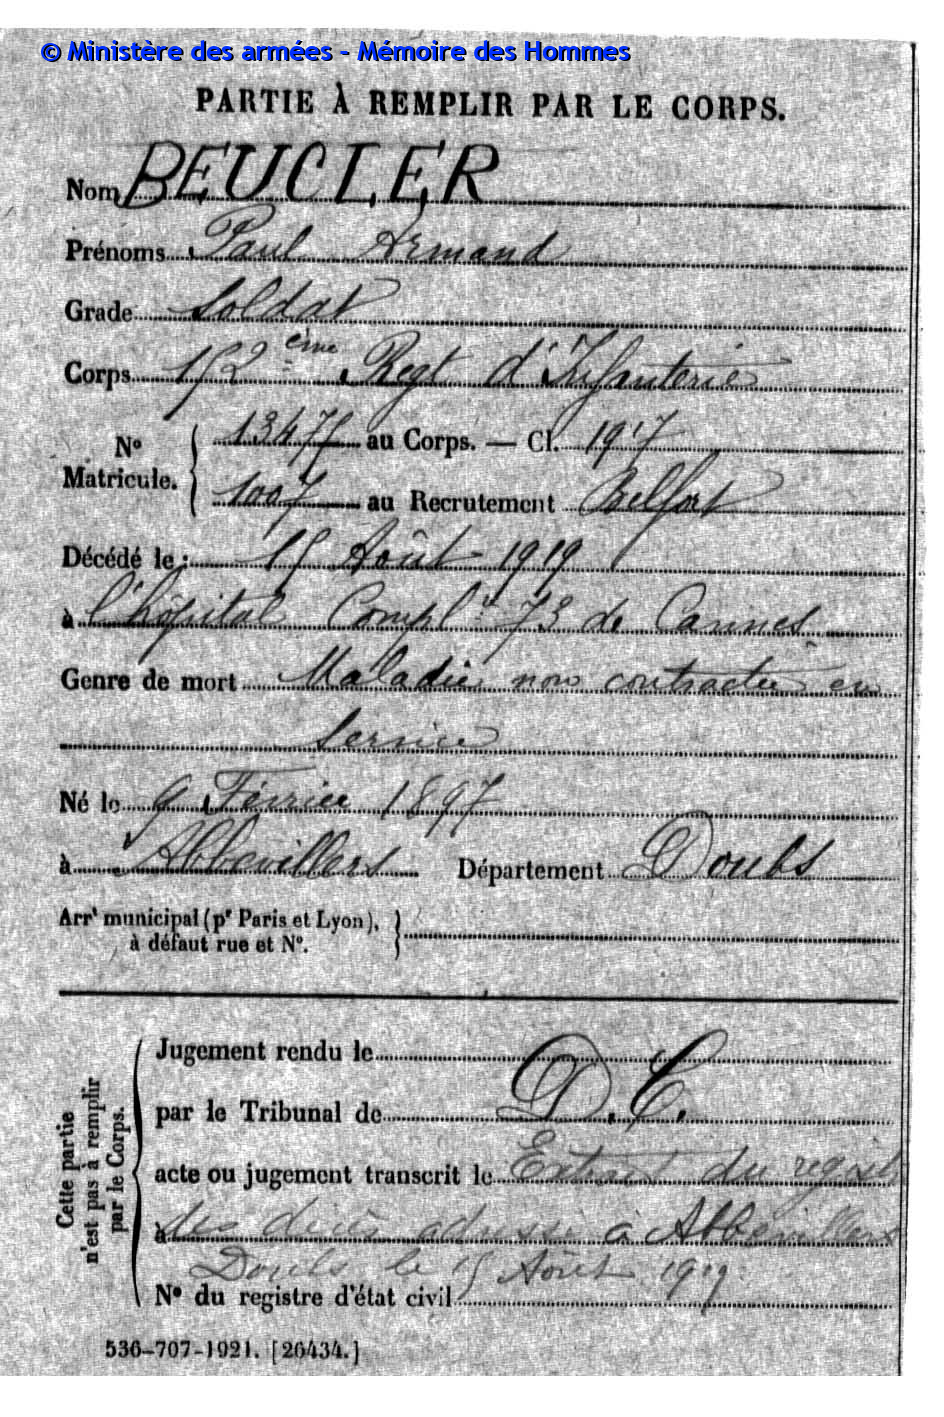 © Ministère des armées - Mémoire des Hommes
PARTIE À REMPLIR PAR LE CORPS.
Nom BEUCLER
Prénoms Paul Armand
Grade Soldat
Corps 152 ème Regt d'Infanterie
N° Matricule. 13477 au Corps. — Cl. 1917
1007 au Recrutement Belfort
Décédé le : 15 Août 1919
à l'hôpital Compl re 73 de Cannes
Genre de mort Maladie non contractée en
service
Né le 9 Février 1897
à Abbevillers Département Doubs
Arrt municipal (pr Paris et Lyon),
à défaut rue et N°.
Cette partie
n'est pas à remplir
par le Corps.
Jugement rendu le
par le Tribunal de D.C.
acte ou jugement transcrit le Extrait du regist
à des décès adressé à Abbevillers
Doubs le 15 Août 1919
N° du registre d'état civil
536-707-1921. [26434.]